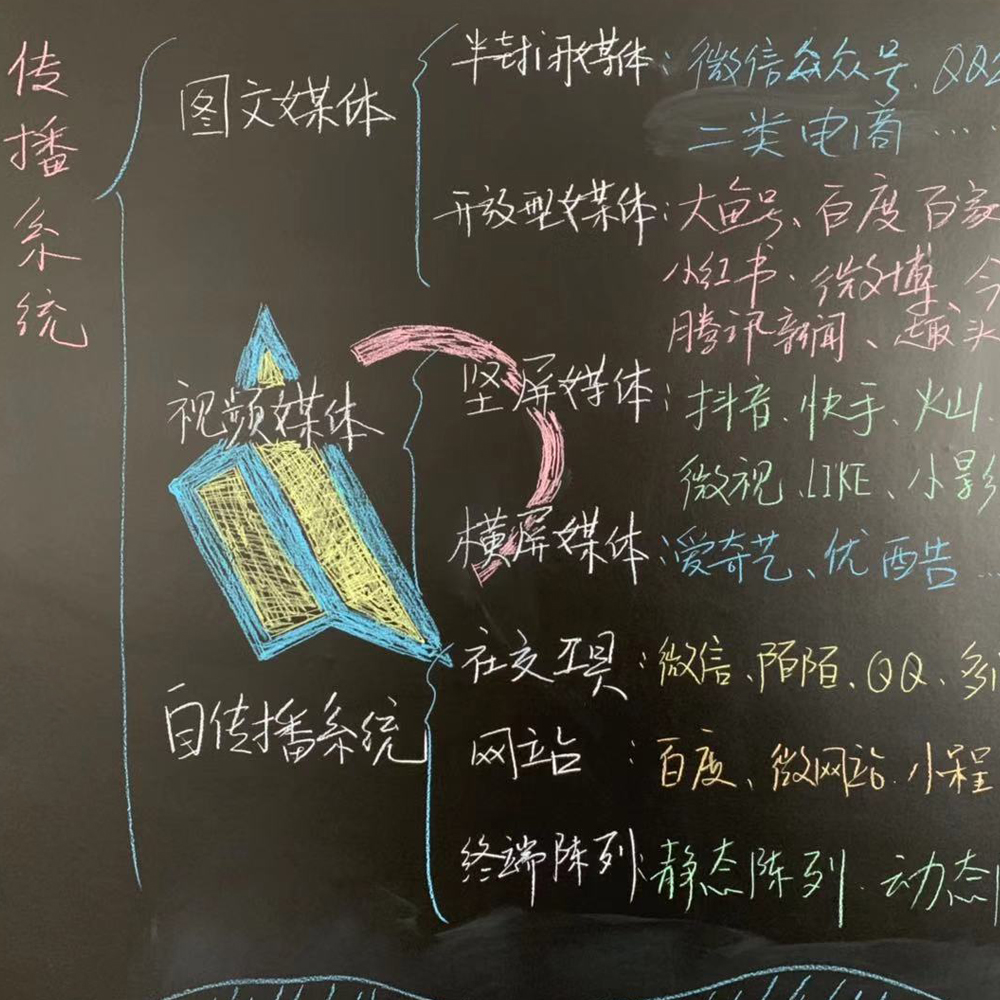 传播系统
图文媒体
半封闭媒体：微信公众号、QQ
二类电商……
开放型媒体：大鱼号、百度百家
小红书、微博、今
腾讯新闻、趣头
视频媒体
竖屏媒体：抖音、快手、火山、
微视、LIKE、小影
横屏媒体：爱奇艺、优酷…
自传播系统
社交工具：微信、陌陌、QQ、多
网站：百度、微网站、小程
终端阵列：静态阵列、动态